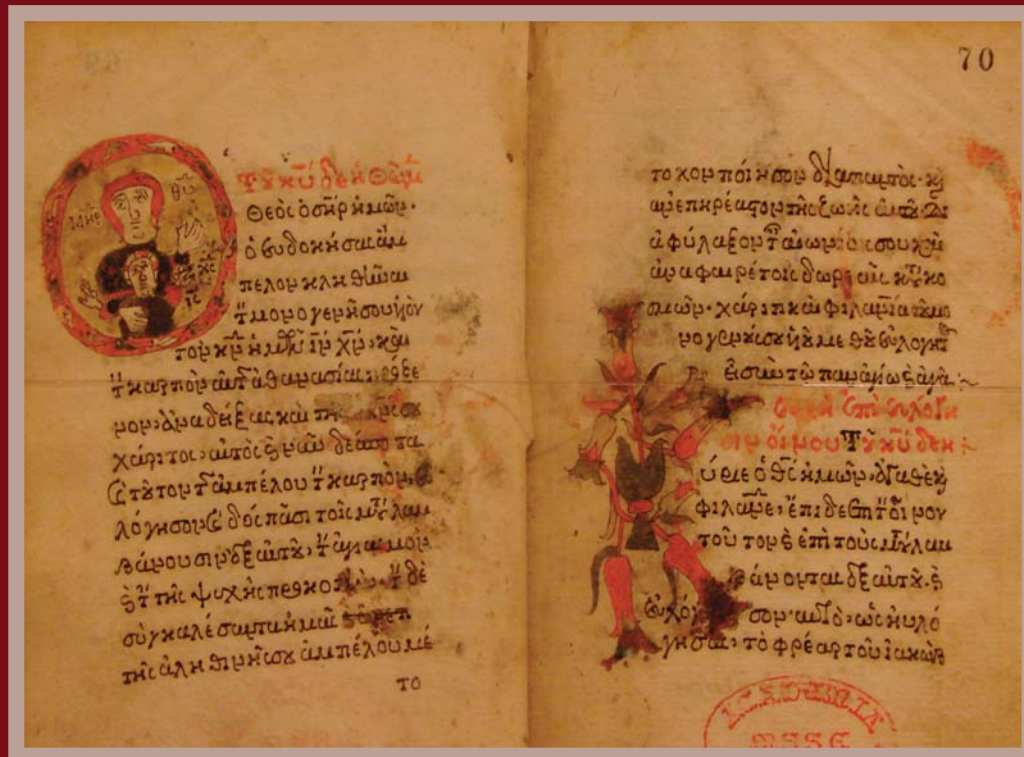 70
Θεὸς ὁ σηρ ἡμῶν·
ὁ εὐδοκήσας ἄμ
πελον κληθῆναι
τ μονογενῆ σου υἱὸν
τὸν κν ἡμῶν ιν χν· καὶ
τ καρπὸν αὐτ ἀθανασίας πρόξε
νον ἀναδείξας καὶ τῆς
χάριτος· αὐτὸς
τοῦτον τ ἀμπέλου τ καρπὸν, εὐ
λόγησον ς δὸς πᾶσι τοῖς μεταλαμ
βάνουσιν ἐξ αὐτοῦ, τ ἁγιασμὸν
ς τ τῆς ψυχῆς
συγκαλέσαντα ἡμᾶς
τῆς ἀληθινῆς σου ἀμπέλου μέ
το
τοχον ποίησον διαπαντὸς· κ
ἀνεπηρέαστον τῆς ζωῆς αὐτοῦ δι
αφύλαξον τ αἰωνίοις σου καὶ
ἀναφαιρέτοις δωρεαῖς κατακο
σμῶν· χάριτι καὶ φιλανία τοῦ μο
νογενοῦς σου υἱοῦ μεθ οὗ εὐλογητ
εἶ σὺν τῶ παναγίω ς ἀγα
Εὐχὴ ἐπὶ εὐλογή
σιν οἴνου Τοῦ κυ δεη
Κύριε ὁ θς ἡμῶν,
φιλανε, ἔπιδε ἐπὶ τ οἶνον
τοῦτον ς ἐπὶ τοὺς μεταλαμ
βάνοντας ἐξ αὐτοῦ· ς
εὐλόγησον αὐτὸ· ὡς ηὐλό
γησας τὸ φρέαρ τοῦ ἰακὼβ